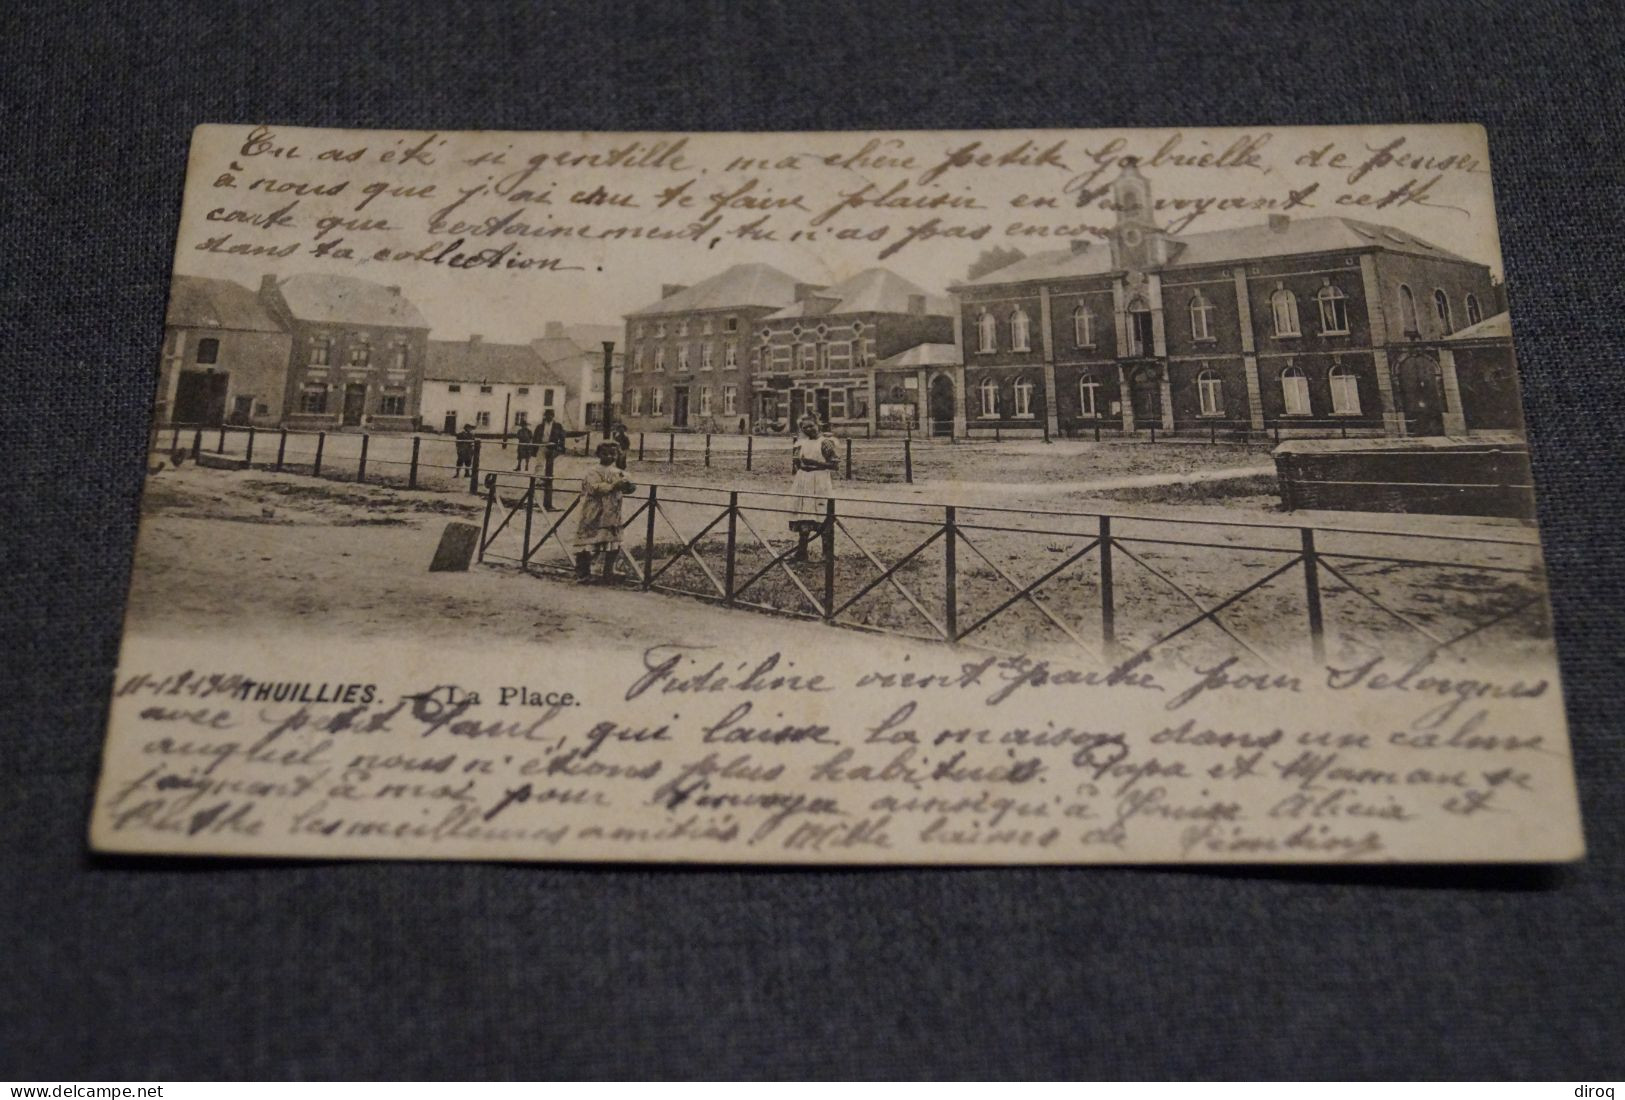 Tu as été si gentille, ma chère petite Gabrielle, de penser
à nous que j'ai cru te faire plaisir en t'envoyant cette
carte que certainement, tu n'as pas encore
dans ta collection.
THUILLIES. — La Place.
Fidéline vient de partir pour Seloignes
avec petit Paul, qui laisse la maison dans un calme
auquel nous n'étions plus habitués. Papa et Maman se
joignent à moi pour t'envoyer ainsi qu'à Louise Alicia et
Berthe les meilleures amitiés. Mille baisers de
www.delcampe.net
diroq